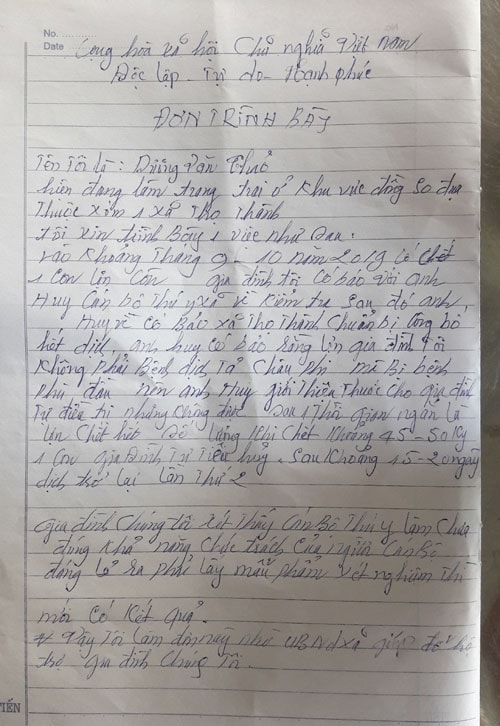 No.
Date
Cộng hòa xã hội Chủ nghĩa Việt Nam
Độc lập - Tự do - Hạnh phúc
ĐƠN TRÌNH BÀY
Tên Tôi là : Dương Văn
hiện đang làm trang Trại ở khu vực đồng so đũa
Thuộc xóm 1 xã Thọ Thành
Tôi xin trình Bày 1 việc như sau.
vào khoảng Tháng 9 - 10 năm 2019 có chết
1 con lợn gia đình tôi có báo với anh
Huy Cán bộ Thú y xã về kiểm tra sau đó anh
Huy về có Bảo xã Thọ Thành Chuẩn bị Công bố
hết dịch, anh huy có bảo rằng lợn gia đình Tôi
không phải Bệnh dịch Tả Châu phi mà bị bệnh
phù đầu nên anh Huy giới Thiệu Thuốc cho gia đình
Tự điều trị nhưng không được sau 1 Thời gian ngắn là
lợn chết hết số lượng khi chết khoảng 45 - 50 kg
1 con gia Đình Tự Tiêu hủy. Sau khoảng 15 - 20 ngày
dịch trở lại lần Thứ 2
gia đình chúng tôi xét Thấy Cán Bộ Thú y làm chưa
đúng khả năng Chức trách của người Cán Bộ
đáng lẽ ra phải lấy mẫu phẩm xét nghiệm Thì
mới có kết quả.
Vậy Tôi làm đơn này nhờ UBND xã giúp đỡ hỗ
trợ gia đình chúng Tôi.
TIẾN